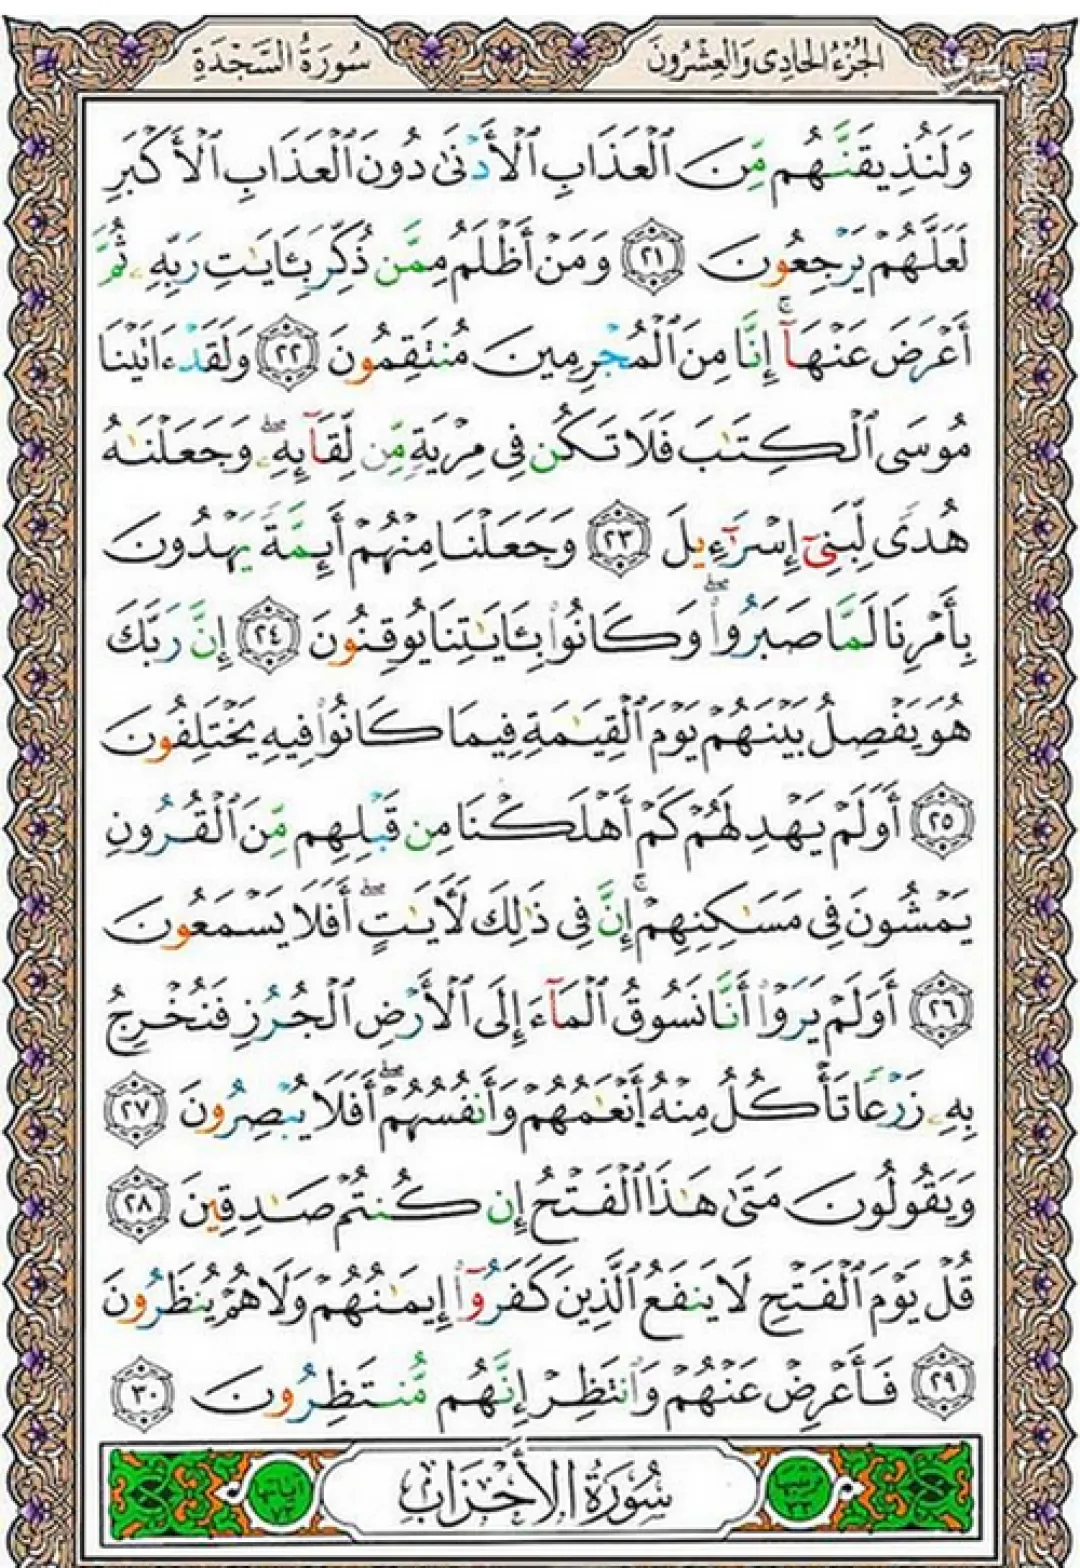 الجُزْءُ الحَادِى وَالعِشْرُونَ
سُورَةُ السَّجْدَةِ
وَلَنُذِيقَنَّهُم مِّنَ ٱلْعَذَابِ ٱلْأَدْنَىٰ دُونَ ٱلْعَذَابِ ٱلْأَكْبَرِ
لَعَلَّهُمْ يَرْجِعُونَ ٢١ وَمَنْ أَظْلَمُ مِمَّن ذُكِّرَ بِـَٔايَـٰتِ رَبِّهِۦ ثُمَّ
أَعْرَضَ عَنْهَآ ۚ إِنَّا مِنَ ٱلْمُجْرِمِينَ مُنتَقِمُونَ ٢٢ وَلَقَدْ ءَاتَيْنَا
مُوسَى ٱلْكِتَـٰبَ فَلَا تَكُن فِى مِرْيَةٍ مِّن لِّقَآئِهِۦ ۖ وَجَعَلْنَـٰهُ
هُدًى لِّبَنِىٓ إِسْرَٰٓءِيلَ ٢٣ وَجَعَلْنَا مِنْهُمْ أَئِمَّةً يَهْدُونَ
بِأَمْرِنَا لَمَّا صَبَرُوا۟ ۖ وَكَانُوا۟ بِـَٔايَـٰتِنَا يُوقِنُونَ ٢٤ إِنَّ رَبَّكَ
هُوَ يَفْصِلُ بَيْنَهُمْ يَوْمَ ٱلْقِيَـٰمَةِ فِيمَا كَانُوا۟ فِيهِ يَخْتَلِفُونَ
٢٥ أَوَلَمْ يَهْدِ لَهُمْ كَمْ أَهْلَكْنَا مِن قَبْلِهِم مِّنَ ٱلْقُرُونِ
يَمْشُونَ فِى مَسَـٰكِنِهِمْ ۚ إِنَّ فِى ذَٰلِكَ لَـَٔايَـٰتٍ ۖ أَفَلَا يَسْمَعُونَ
٢٦ أَوَلَمْ يَرَوْا۟ أَنَّا نَسُوقُ ٱلْمَآءَ إِلَى ٱلْأَرْضِ ٱلْجُرُزِ فَنُخْرِجُ
بِهِۦ زَرْعًا تَأْكُلُ مِنْهُ أَنْعَـٰمُهُمْ وَأَنفُسُهُمْ ۖ أَفَلَا يُبْصِرُونَ ٢٧
وَيَقُولُونَ مَتَىٰ هَـٰذَا ٱلْفَتْحُ إِن كُنتُمْ صَـٰدِقِينَ ٢٨
قُلْ يَوْمَ ٱلْفَتْحِ لَا يَنفَعُ ٱلَّذِينَ كَفَرُوٓا۟ إِيمَـٰنُهُمْ وَلَا هُمْ يُنظَرُونَ
٢٩ فَأَعْرِضْ عَنْهُمْ وَٱنتَظِرْ إِنَّهُم مُّنتَظِرُونَ ٣٠
ترتيبها ٣٣
سُورَةُ الأَحْزَابِ
آياتها ٧٣